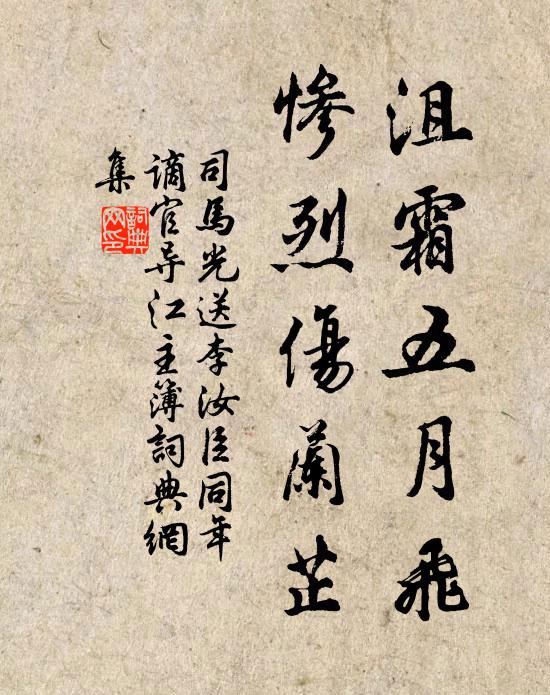 沮霜五月飛
慘烈傷蘭芷
司馬光送李汝臣同年
謫官导江主簿詞典網
集
詞典
网印